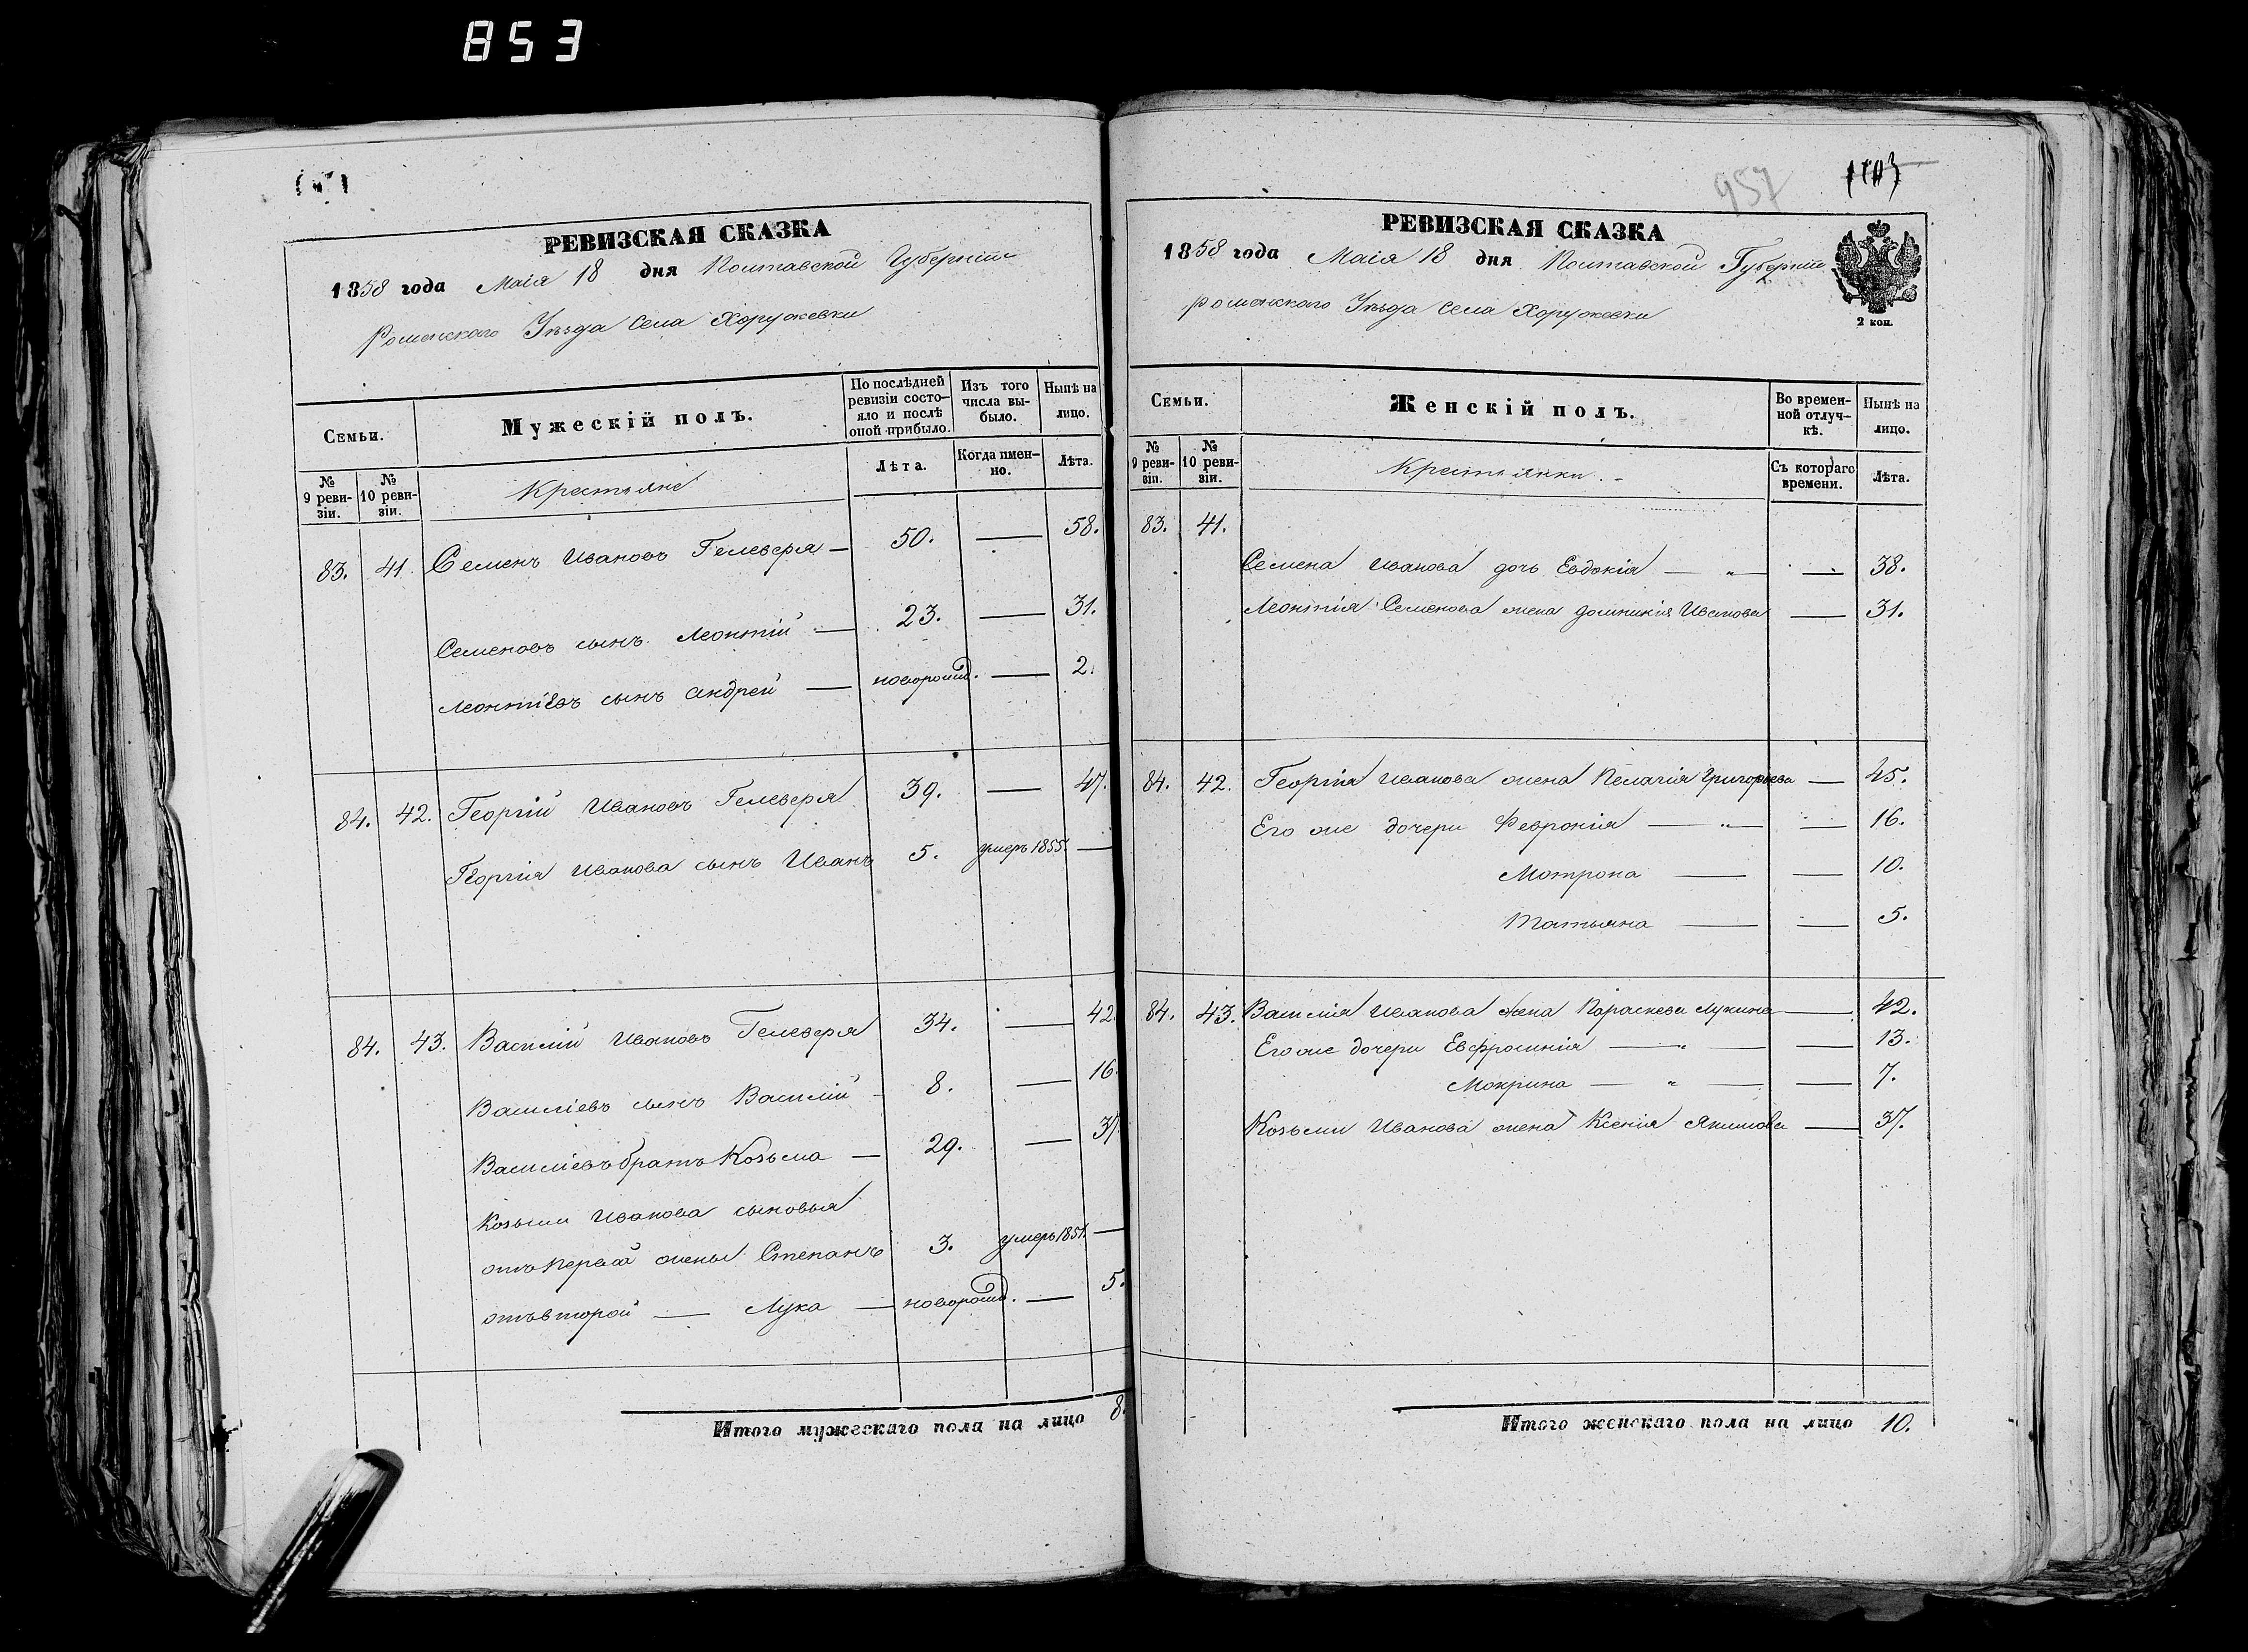 853
РЕВИЗСКАЯ СКАЗКА
1858 года Маія 18 дня Полтавской Губерніи
Роменского Уѣзда Села Хоружевки
Семьи.
Мужескій полъ.
По послѣдней ревизіи состояло и послѣ оной прибыло.
Изъ того числа выбыло.
Нынѣ на лицо.
№ 9 ревизіи.
№ 10 ревизіи.
Крестьяне
Лѣта.
Когда именно.
Лѣта.
83. 41. Семенъ Ивановъ Гелеверя — 50. — 58.
Семеновъ сынъ Леонтій — 23. — 31.
Леонтіевъ сынъ Андрей — новорожд. — 2.
84. 42. Георгій Ивановъ Гелеверя 39. — 47.
Георгія Иванова сынъ Иванъ 5. умеръ 1855 —
84. 43. Василій Ивановъ Гелеверя 34. — 42.
Василіевъ сынъ Василій 8. — 16.
Василіевъ братъ Козьма — 29. — 37.
Козьми Иванова сыновья
отъ первой жены Степанъ 3. умеръ 1851. —
отъ второй — Лука — новорожд. — 5.
Итого мужескаго пола на лицо 8.
957
РЕВИЗСКАЯ СКАЗКА
1858 года Маія 18 дня Полтавской Губерніи
Роменскаго Уѣзда Села Хоружевки
2 коп.
Семьи.
Женскій полъ.
Во временной отлучкѣ.
Нынѣ на лицо.
№ 9 ревизіи.
№ 10 ревизіи.
Крестьянки.
Съ котораго времени.
Лѣта.
83. 41.
Семена Иванова дочь Евдокія — „ — — 38.
Леонтія Семенова жена Домникія Иванова — 31.
84. 42. Георгія Иванова жена Пелагія Григорьева — 45.
Его же дочери Февронія — „ — — 16.
Мотрона — — 10.
Татьяна — — 5.
84. 43. Василія Иванова жена Параскева Лукина — 42.
Его же дочери Евфросинія — „ — — 13.
Мокрина — „ — — 7.
Козьми Иванова жена Ксенія Якимова — 37.
Итого женскаго пола на лицо 10.